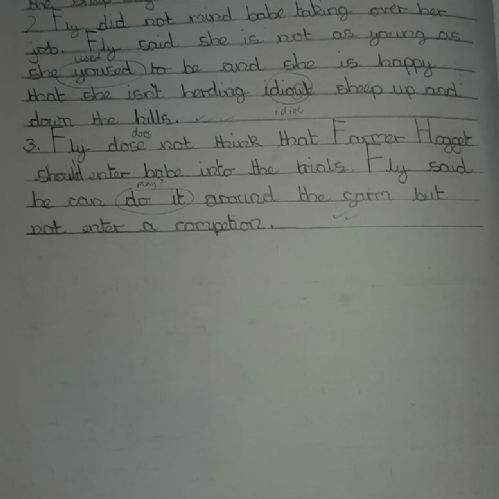 2 Fly did not mind babe taking over her
job. Fly said she is not as young as
used
she yoused to be and she is happy
that she isn't herding idiout sheep up and
idiot
down the hills.
does
3. Fly dose not think that Farmer Hogget
should enter babe into the trials. Fly said
play?
he can do it around the farm but
not enter a competion.